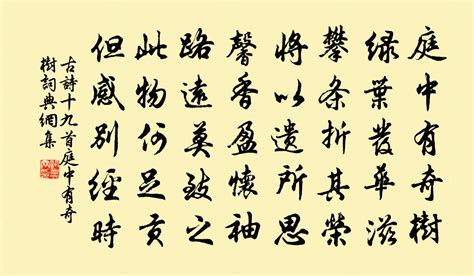 庭中有奇樹
绿葉發華滋
攀条折其榮
將以遺所思
馨香盈懷袖
路遠莫致之
此物何足貢
但感别經時
古詩十九首庭中有奇
樹詞典網集